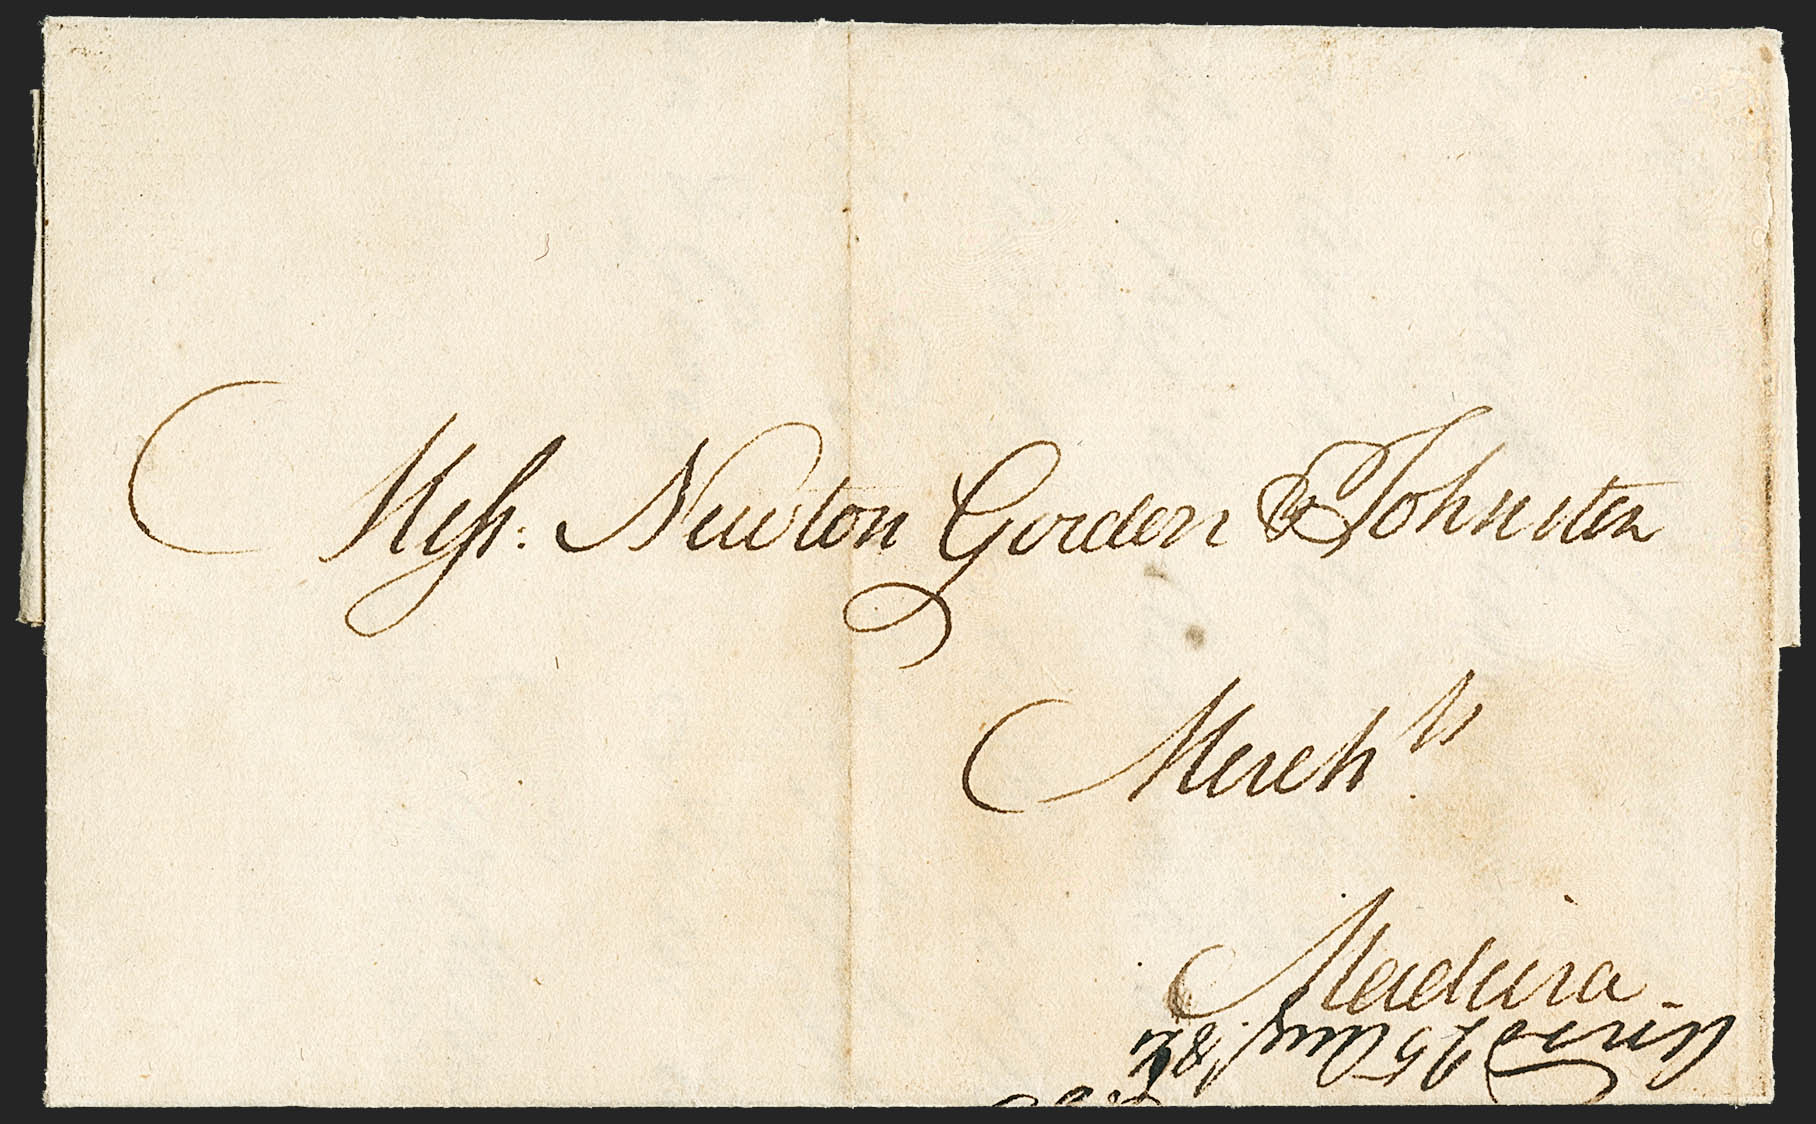 Mess: Newton Gordon & Johnston
Merch ts
Madeira -
25 Aug